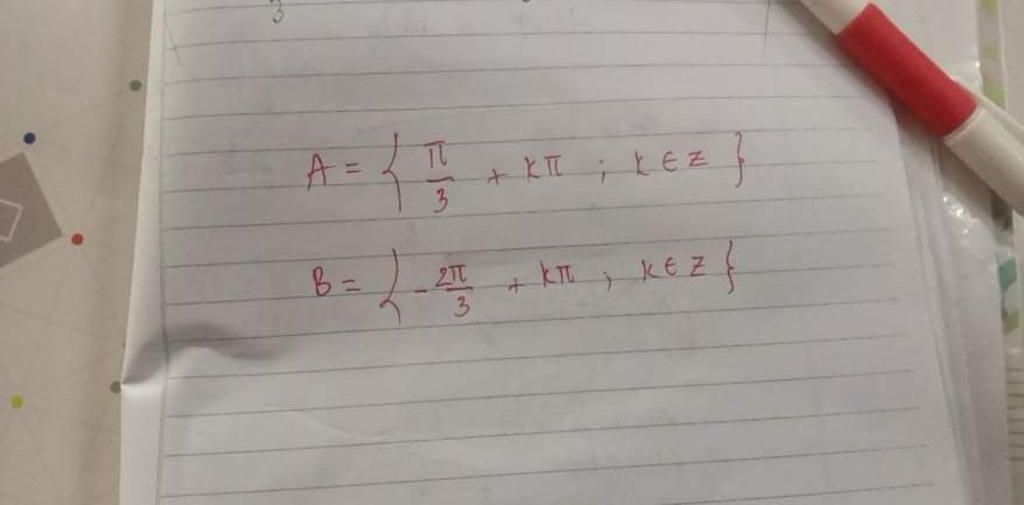 3
A = { π/3 + kπ ; k ∈ z }
B = { -2π/3 + kπ ; k ∈ z }